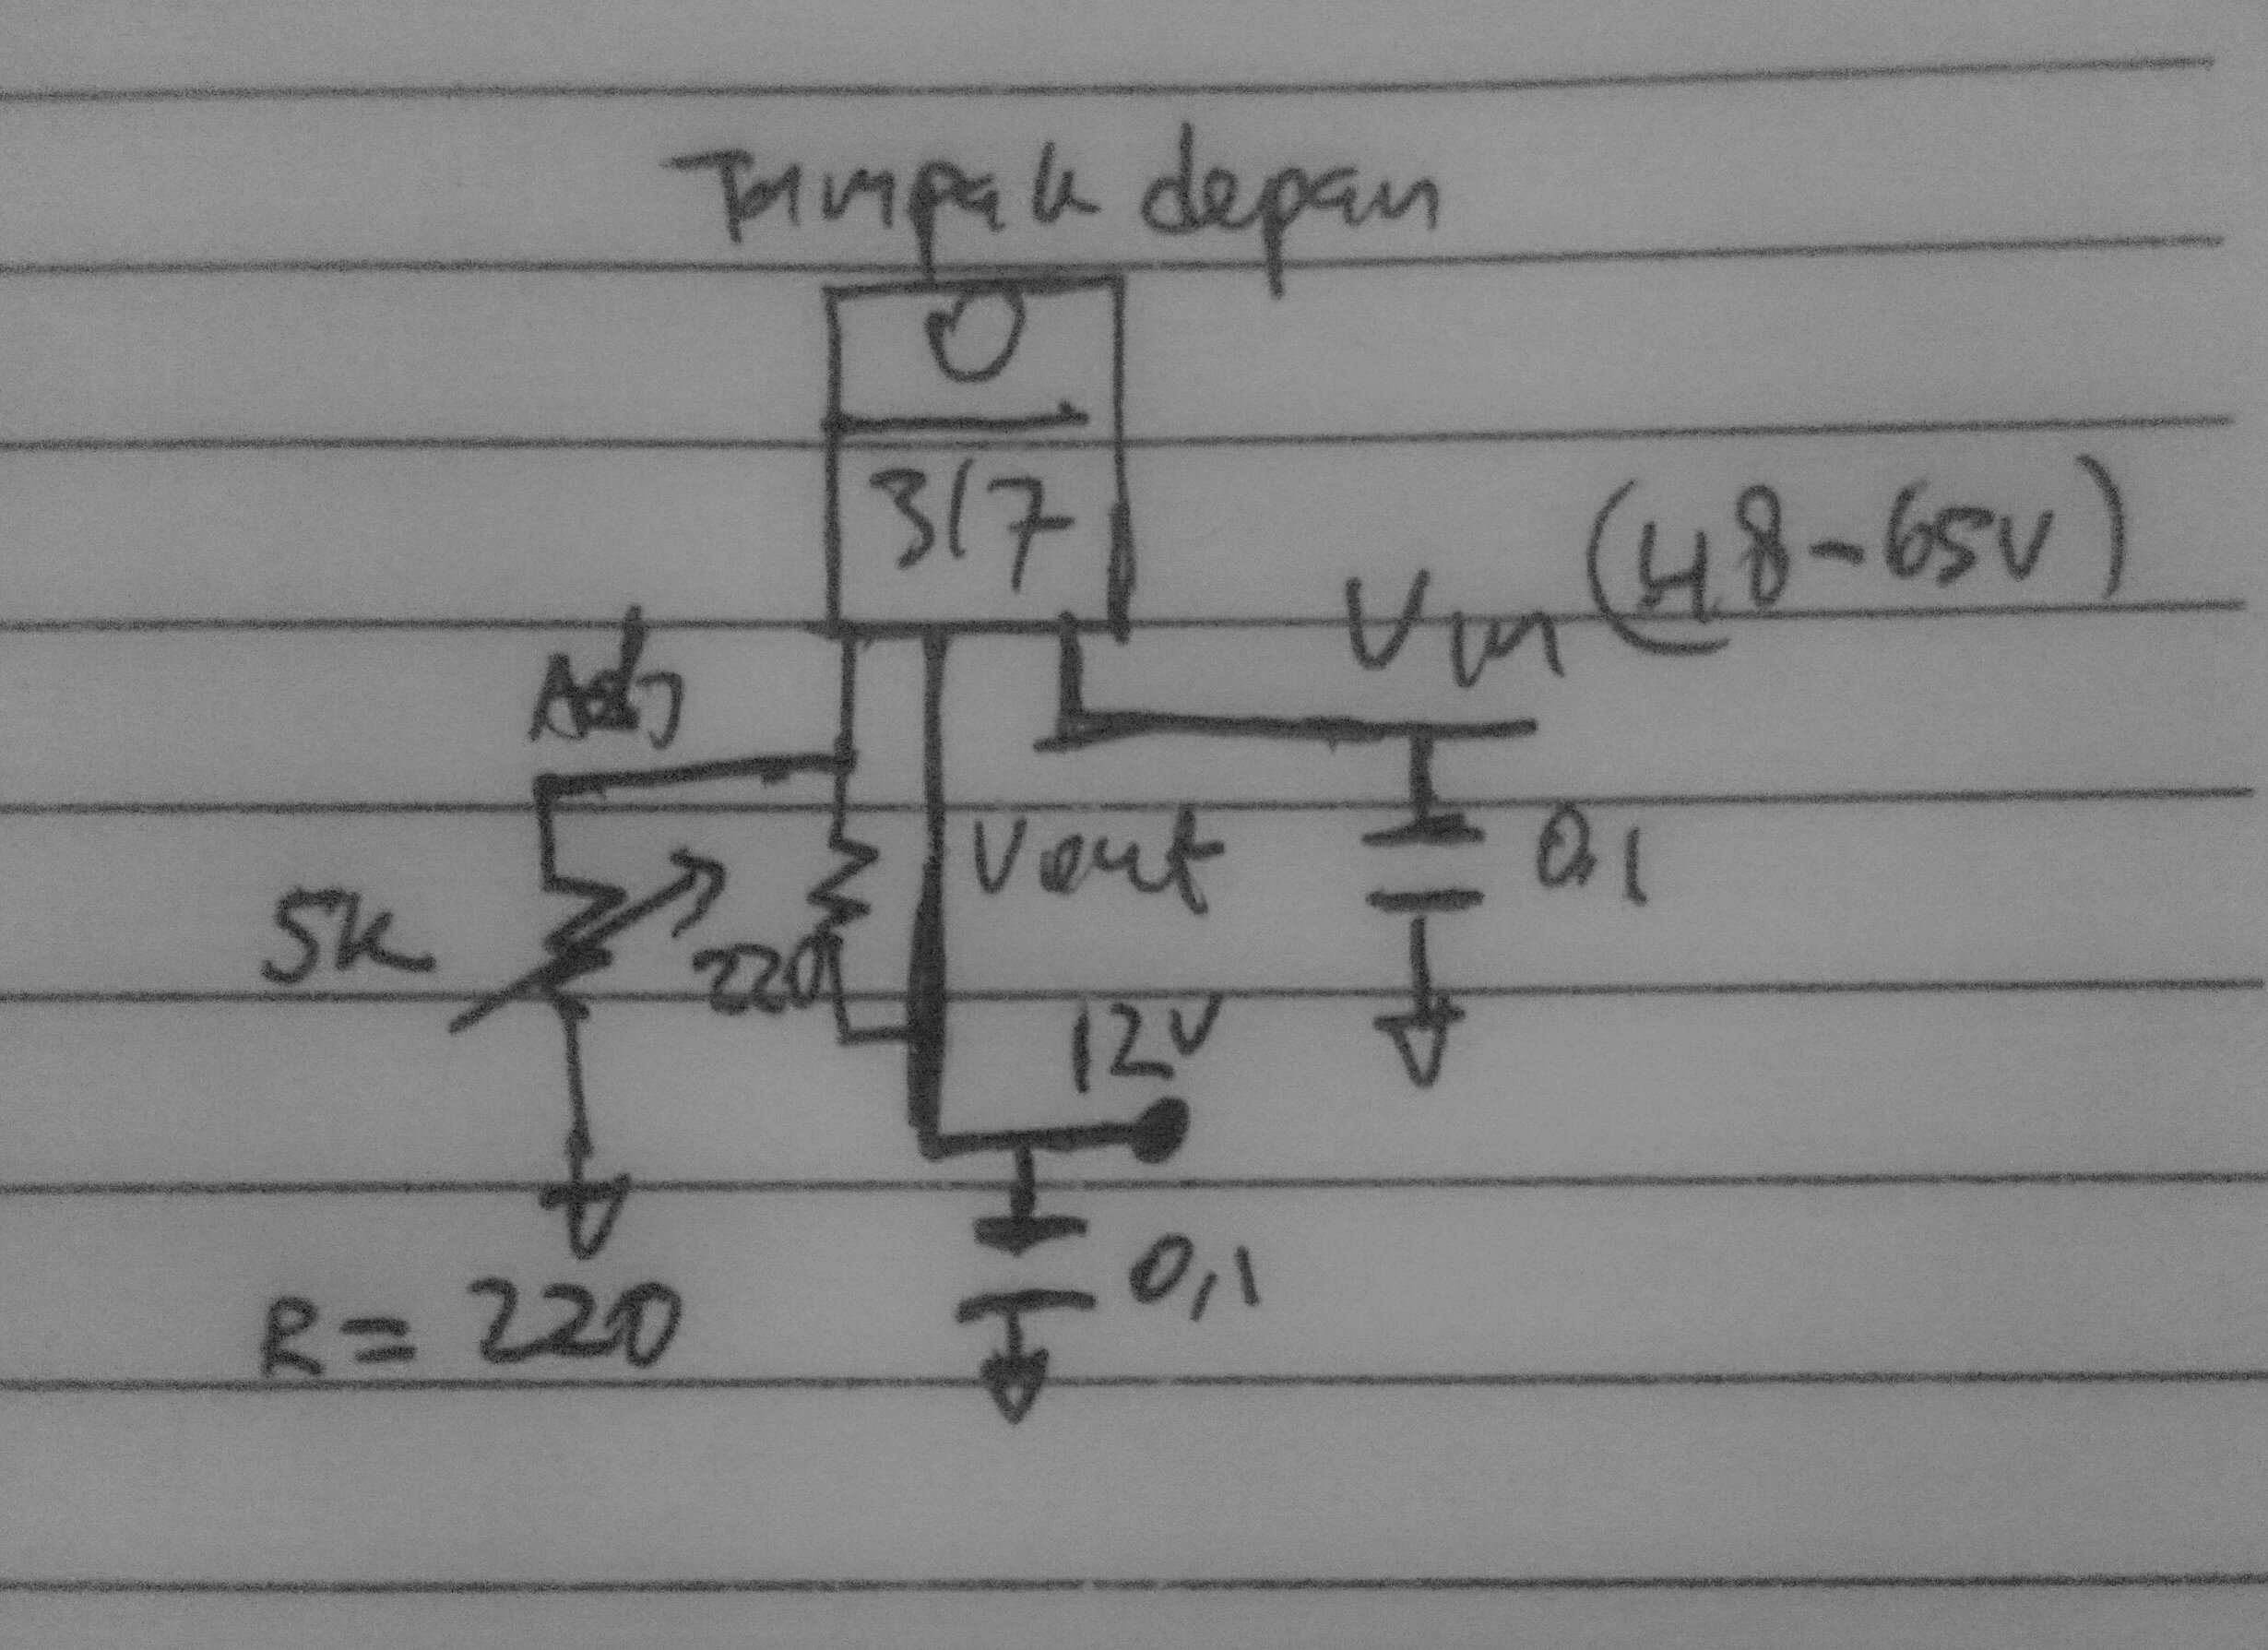 Tampak depan
317
Vin (48-65V)
Adj
Vout
0,1
5k
220
12V
0,1
R = 220